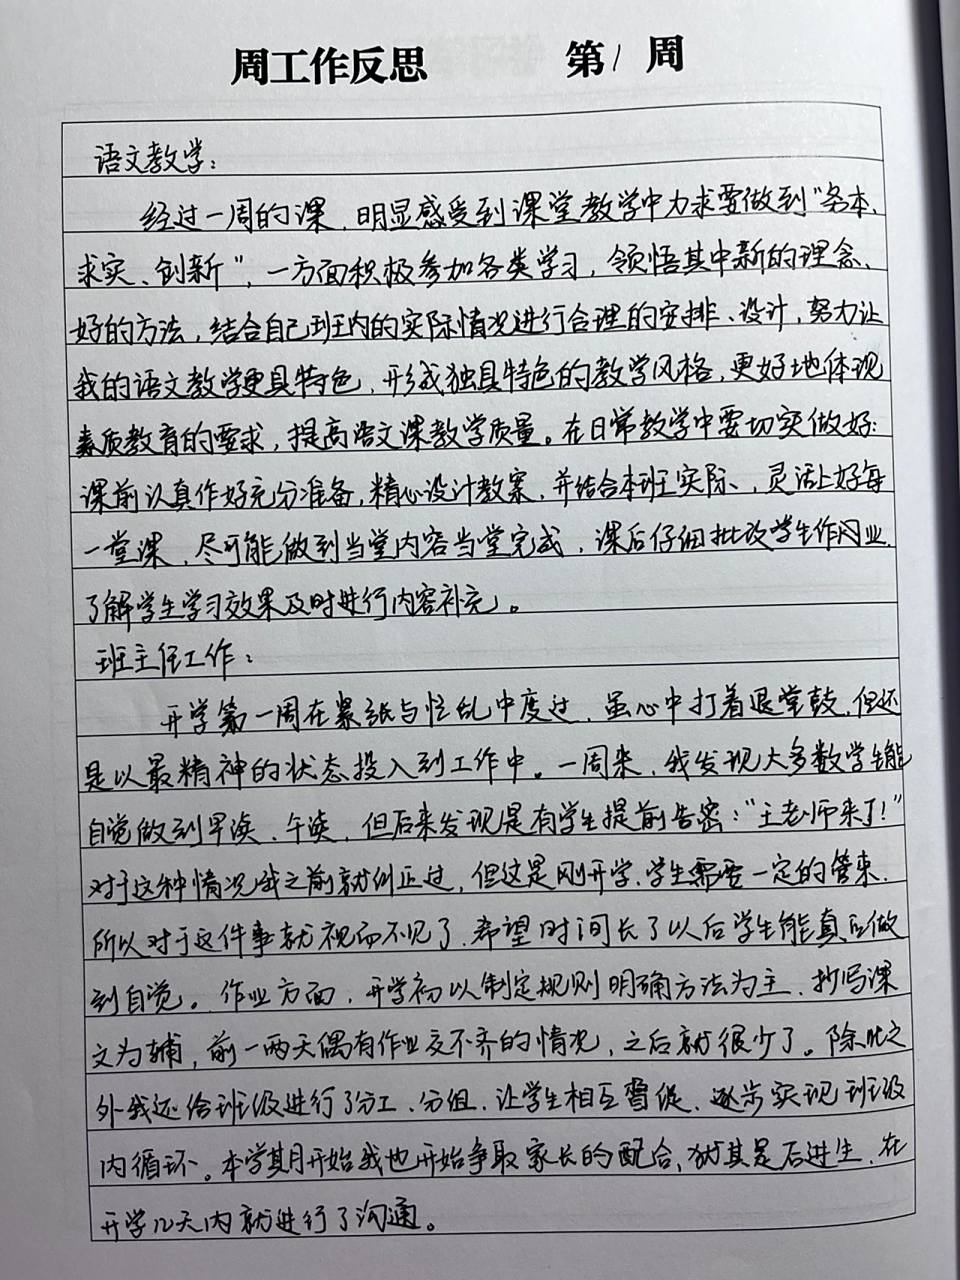 周工作反思 第1周
语文教学：
经过一周的课，明显感受到课堂教学中力求要做到"务本、
求实、创新"，一方面积极参加各类学习，领悟其中新的理念、
好的方法，结合自己班内的实际情况进行合理的安排、设计，努力让
我的语文教学更具特色，形成独具特色的教学风格，更好地体现
素质教育的要求，提高语文课教学质量。在日常教学中要切实做好：
课前认真作好充分准备，精心设计教案，并结合本班实际、，灵活上好每
一堂课，尽可能做到当堂内容当堂完成，课后仔细批改学生作业，
了解学生学习效果及时进行内容补充。
班主任工作：
开学第一周在紧张与忙乱中度过，虽心中打着退堂鼓，但还
是以最精神的状态投入到工作中。一周来，我发现大多数学生能
自觉做到早读、午读，但后来发现是有学生提前告密："王老师来了！"
对于这种情况我之前就纠正过，但这是刚开学，学生需要一定的管束，
所以对于这件事就视而不见了，希望时间长了以后学生能真正做
到自觉。作业方面，开学初以制定规则明确方法为主，抄写课
文为辅，前一两天偶有作业交不齐的情况，之后就很少了。除此之
外我还给班级进行了分工、分组，让学生相互督促，逐步实现班级
内循环。本学期开始我也开始争取家长的配合，犹其是后进生，在
开学几天内就进行了沟通。